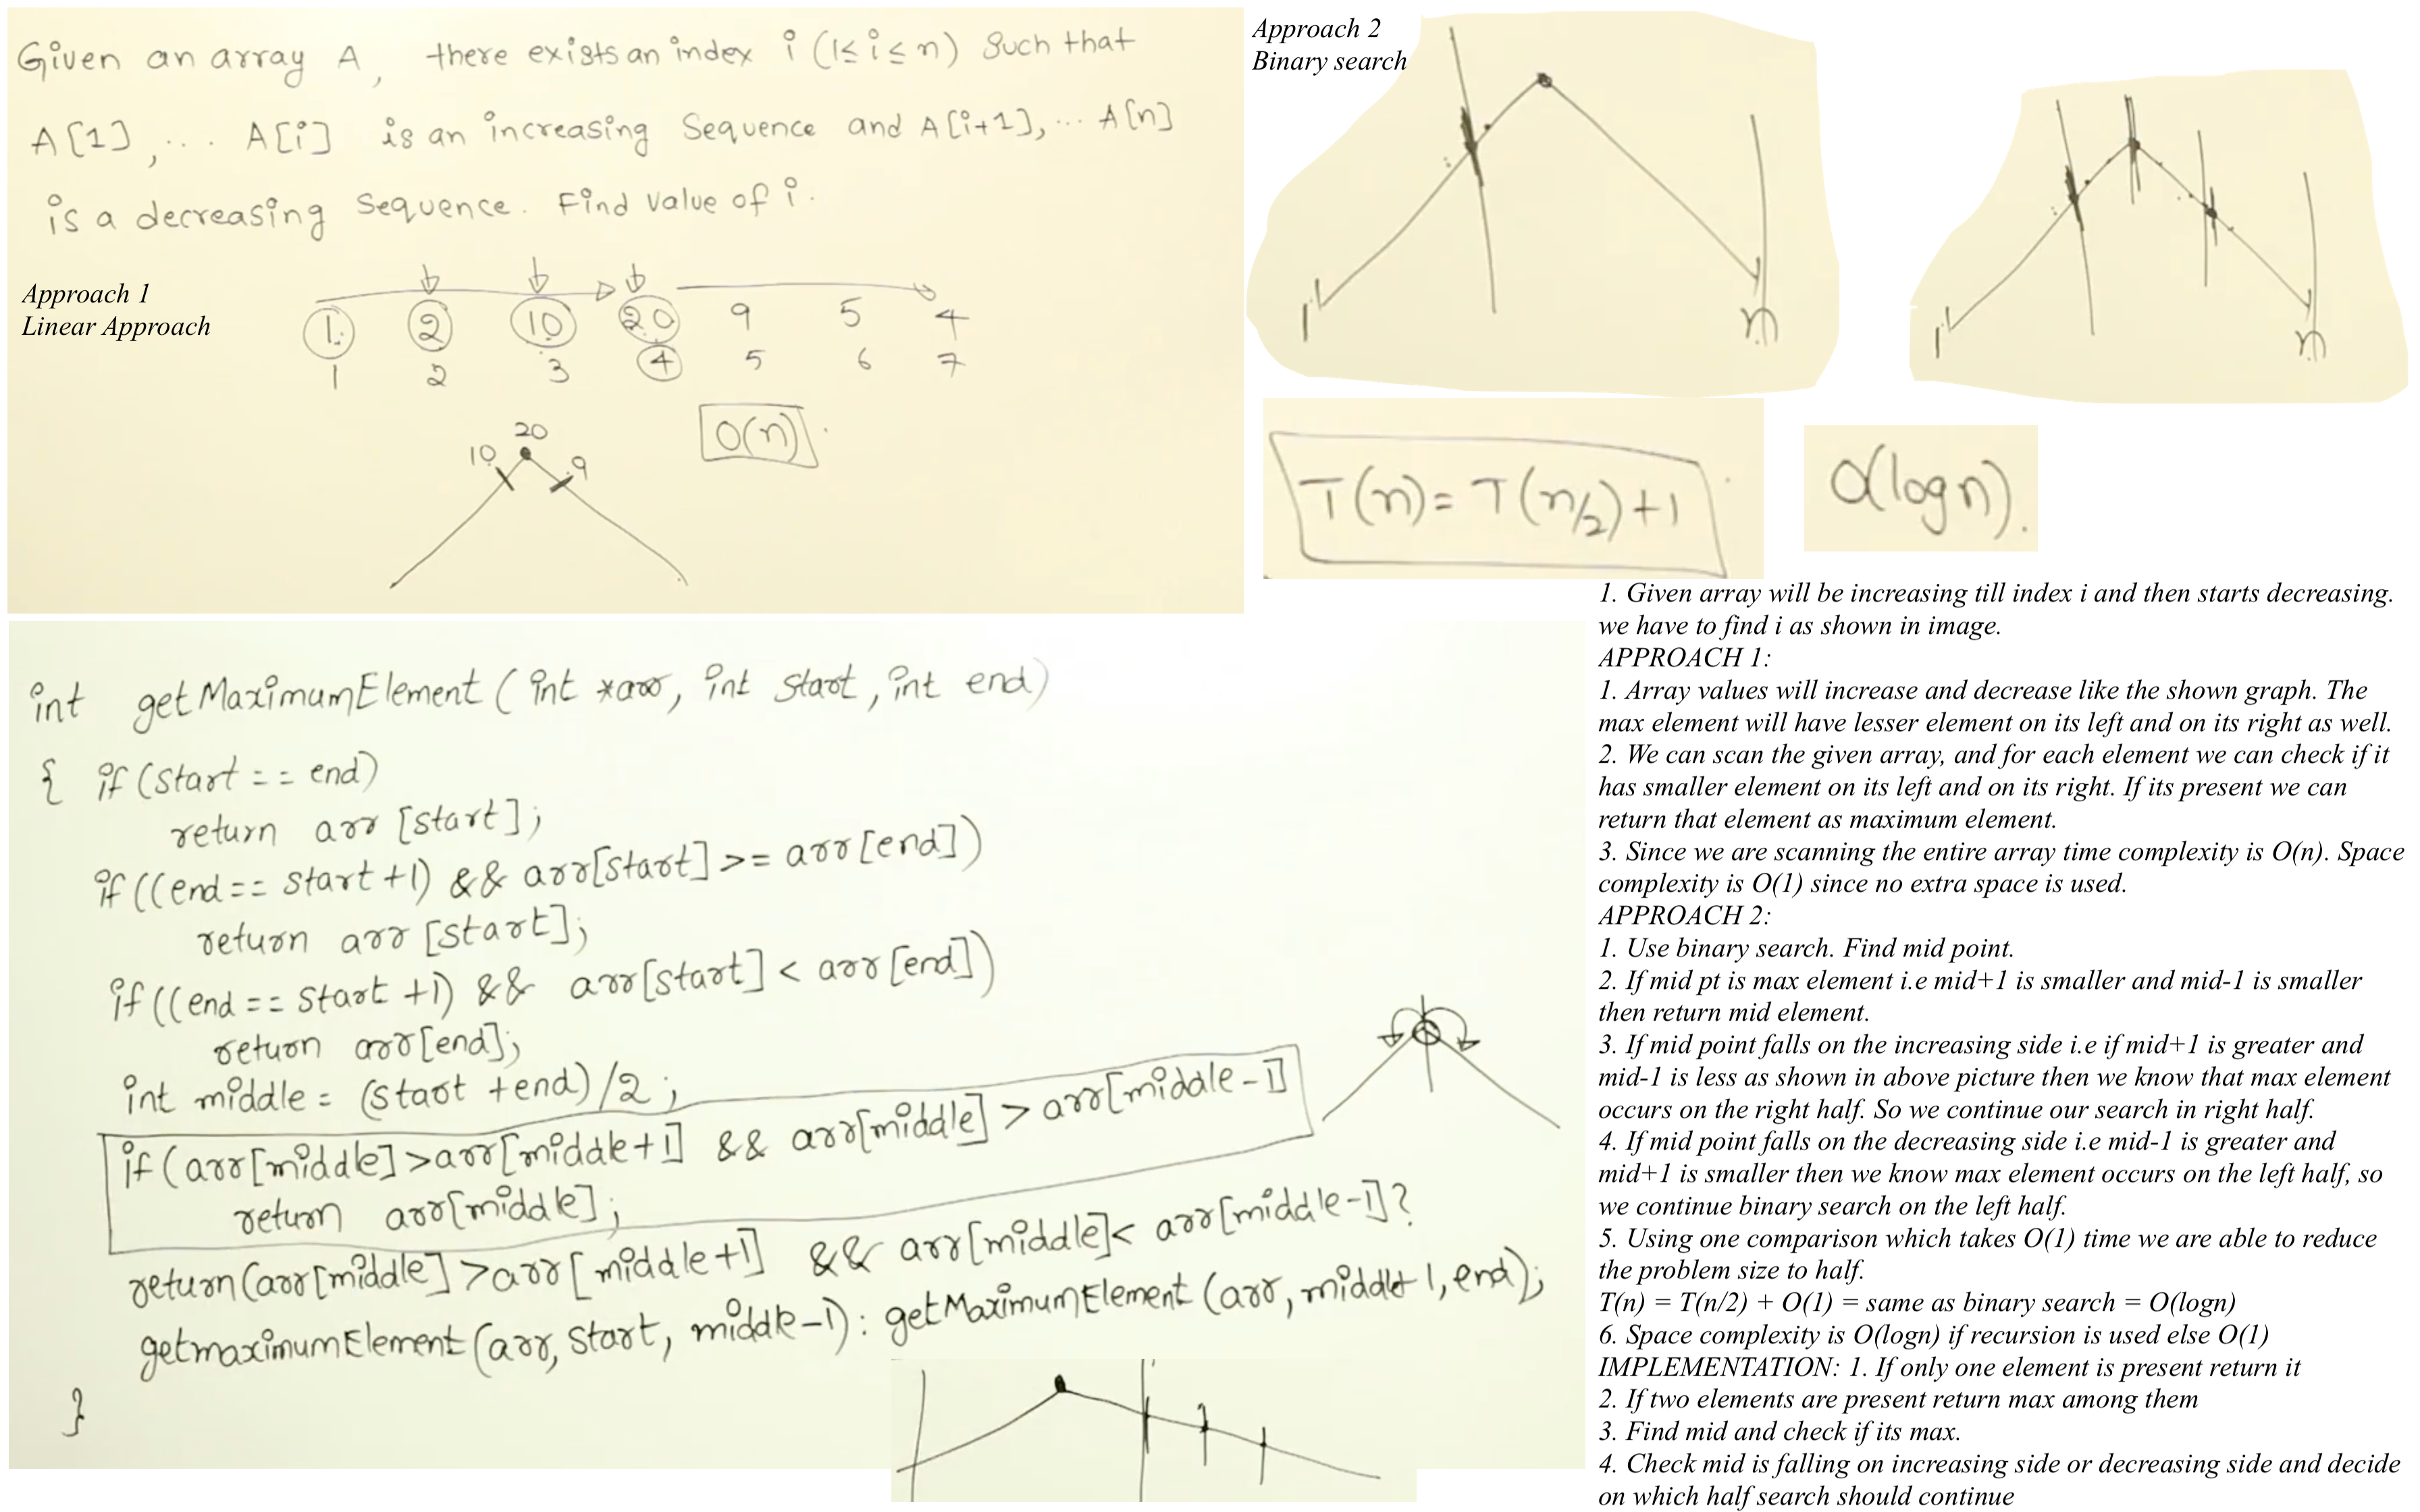 Given an array A, there exists an index i (1≤i≤n) Such that
A[1],... A[i] is an increasing Sequence and A[i+1],... A[n]
is a decreasing Sequence. Find Value of i.
Approach 1
Linear Approach
1 2 10 20 9 5 4
1 2 3 4 5 6 7
O(n)
20
10 9
Approach 2
Binary search
1 n
1 n
T(n)= T(n/2)+1
O(logn).
int getMaximumElement ( int *arr, int start, int end)
{ if(start == end)
return arr [start];
if((end== start+1) && arr[start] >= arr[end])
return arr [start];
if((end == start +1) && arr[start] < arr[end])
return arr[end];
int middle = (start +end)/2;
if(arr[middle]>arr[middle+1] && arr[middle] > arr[middle-1]
return arr[middle];
return(arr[middle]>arr[middle+1] && arr[middle]< arr[middle-1]?
getmaximumElement(arr, start, middle-1): getMaximumElement(arr, middle+1, end);
}
1. Given array will be increasing till index i and then starts decreasing.
we have to find i as shown in image.
APPROACH 1:
1. Array values will increase and decrease like the shown graph. The
max element will have lesser element on its left and on its right as well.
2. We can scan the given array, and for each element we can check if it
has smaller element on its left and on its right. If its present we can
return that element as maximum element.
3. Since we are scanning the entire array time complexity is O(n). Space
complexity is O(1) since no extra space is used.
APPROACH 2:
1. Use binary search. Find mid point.
2. If mid pt is max element i.e mid+1 is smaller and mid-1 is smaller
then return mid element.
3. If mid point falls on the increasing side i.e if mid+1 is greater and
mid-1 is less as shown in above picture then we know that max element
occurs on the right half. So we continue our search in right half.
4. If mid point falls on the decreasing side i.e mid-1 is greater and
mid+1 is smaller then we know max element occurs on the left half, so
we continue binary search on the left half.
5. Using one comparison which takes O(1) time we are able to reduce
the problem size to half.
T(n) = T(n/2) + O(1) = same as binary search = O(logn)
6. Space complexity is O(logn) if recursion is used else O(1)
IMPLEMENTATION: 1. If only one element is present return it
2. If two elements are present return max among them
3. Find mid and check if its max.
4. Check mid is falling on increasing side or decreasing side and decide
on which half search should continue